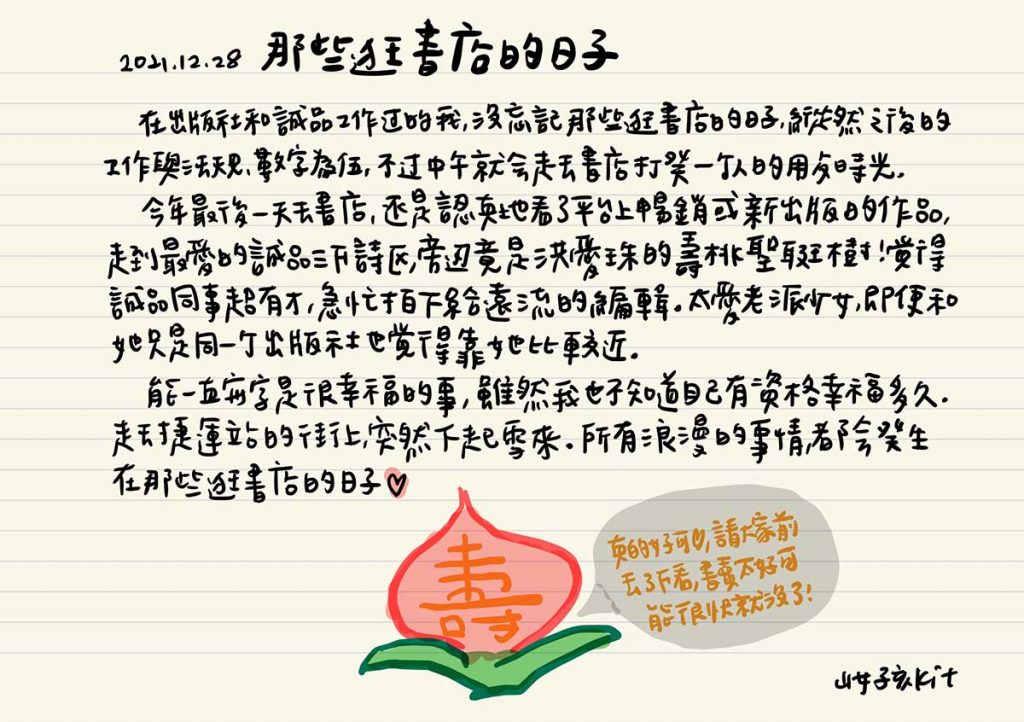 2021.12.28 那些逛書店的日子
在出版社和誠品工作过的我,沒忘記那些逛書店的日子,縱然之後的
工作與法規、數字為伍,不过中午就会走去書店打發一个人的用歺時光.
今年最後一天去書店,还是認真地看了平台上暢銷或新出版的作品,
走到最愛的誠品三下詩区,旁边竟是洪愛珠的壽桃聖誕樹!覚得
誠品同事超有才,急忙拍下給遠流的編輯.太愛老派少女,即便和
她只是同一个出版社也覚得靠她比較近.
能一直寫字是很幸福的事,雖然我也不知道自己有資格幸福多久.
走去捷運站的街上,突然下起雪來.所有浪漫的事情,都会發生
在那些逛書店的日子♡
壽
真的好可♡,請大家前
去了下看,書賣不好可
能很快就沒了!
山女孩Kit